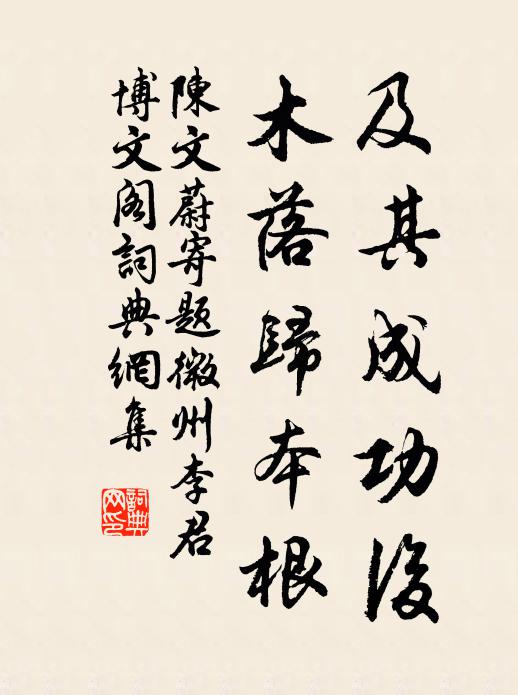 及其成功後
木落歸本根
陳文蔚寄題徽州李君
博文阁詞典網集
詞典网印